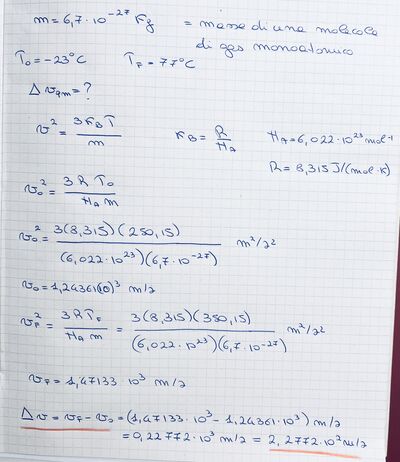 m = 6,7·10⁻²⁷ Kg = massa di una molecola
di gas monoatomico
T₀ = -23°C T_F = 77°C
Δv_qm = ?
v² = 3 K_B T / m K_B = R / N_A N_A = 6,022·10²³ mol⁻¹
R = 8,315 J/(mol·K)
v₀² = 3 R T₀ / N_A m
v₀² = 3(8,315)(250,15) / (6,022·10²³)(6,7·10⁻²⁷) m²/s²
v₀ = 1,24361(10)³ m/s
v_F² = 3RT_F / N_A m = 3(8,315)(350,15) / (6,022·10²³)(6,7·10⁻²⁷) m²/s²
v_F = 1,47133 10³ m/s
Δv = v_F - v₀ = (1,47133·10³ - 1,24361·10³) m/s
= 0,22772·10³ m/s = 2,2772·10² m/s